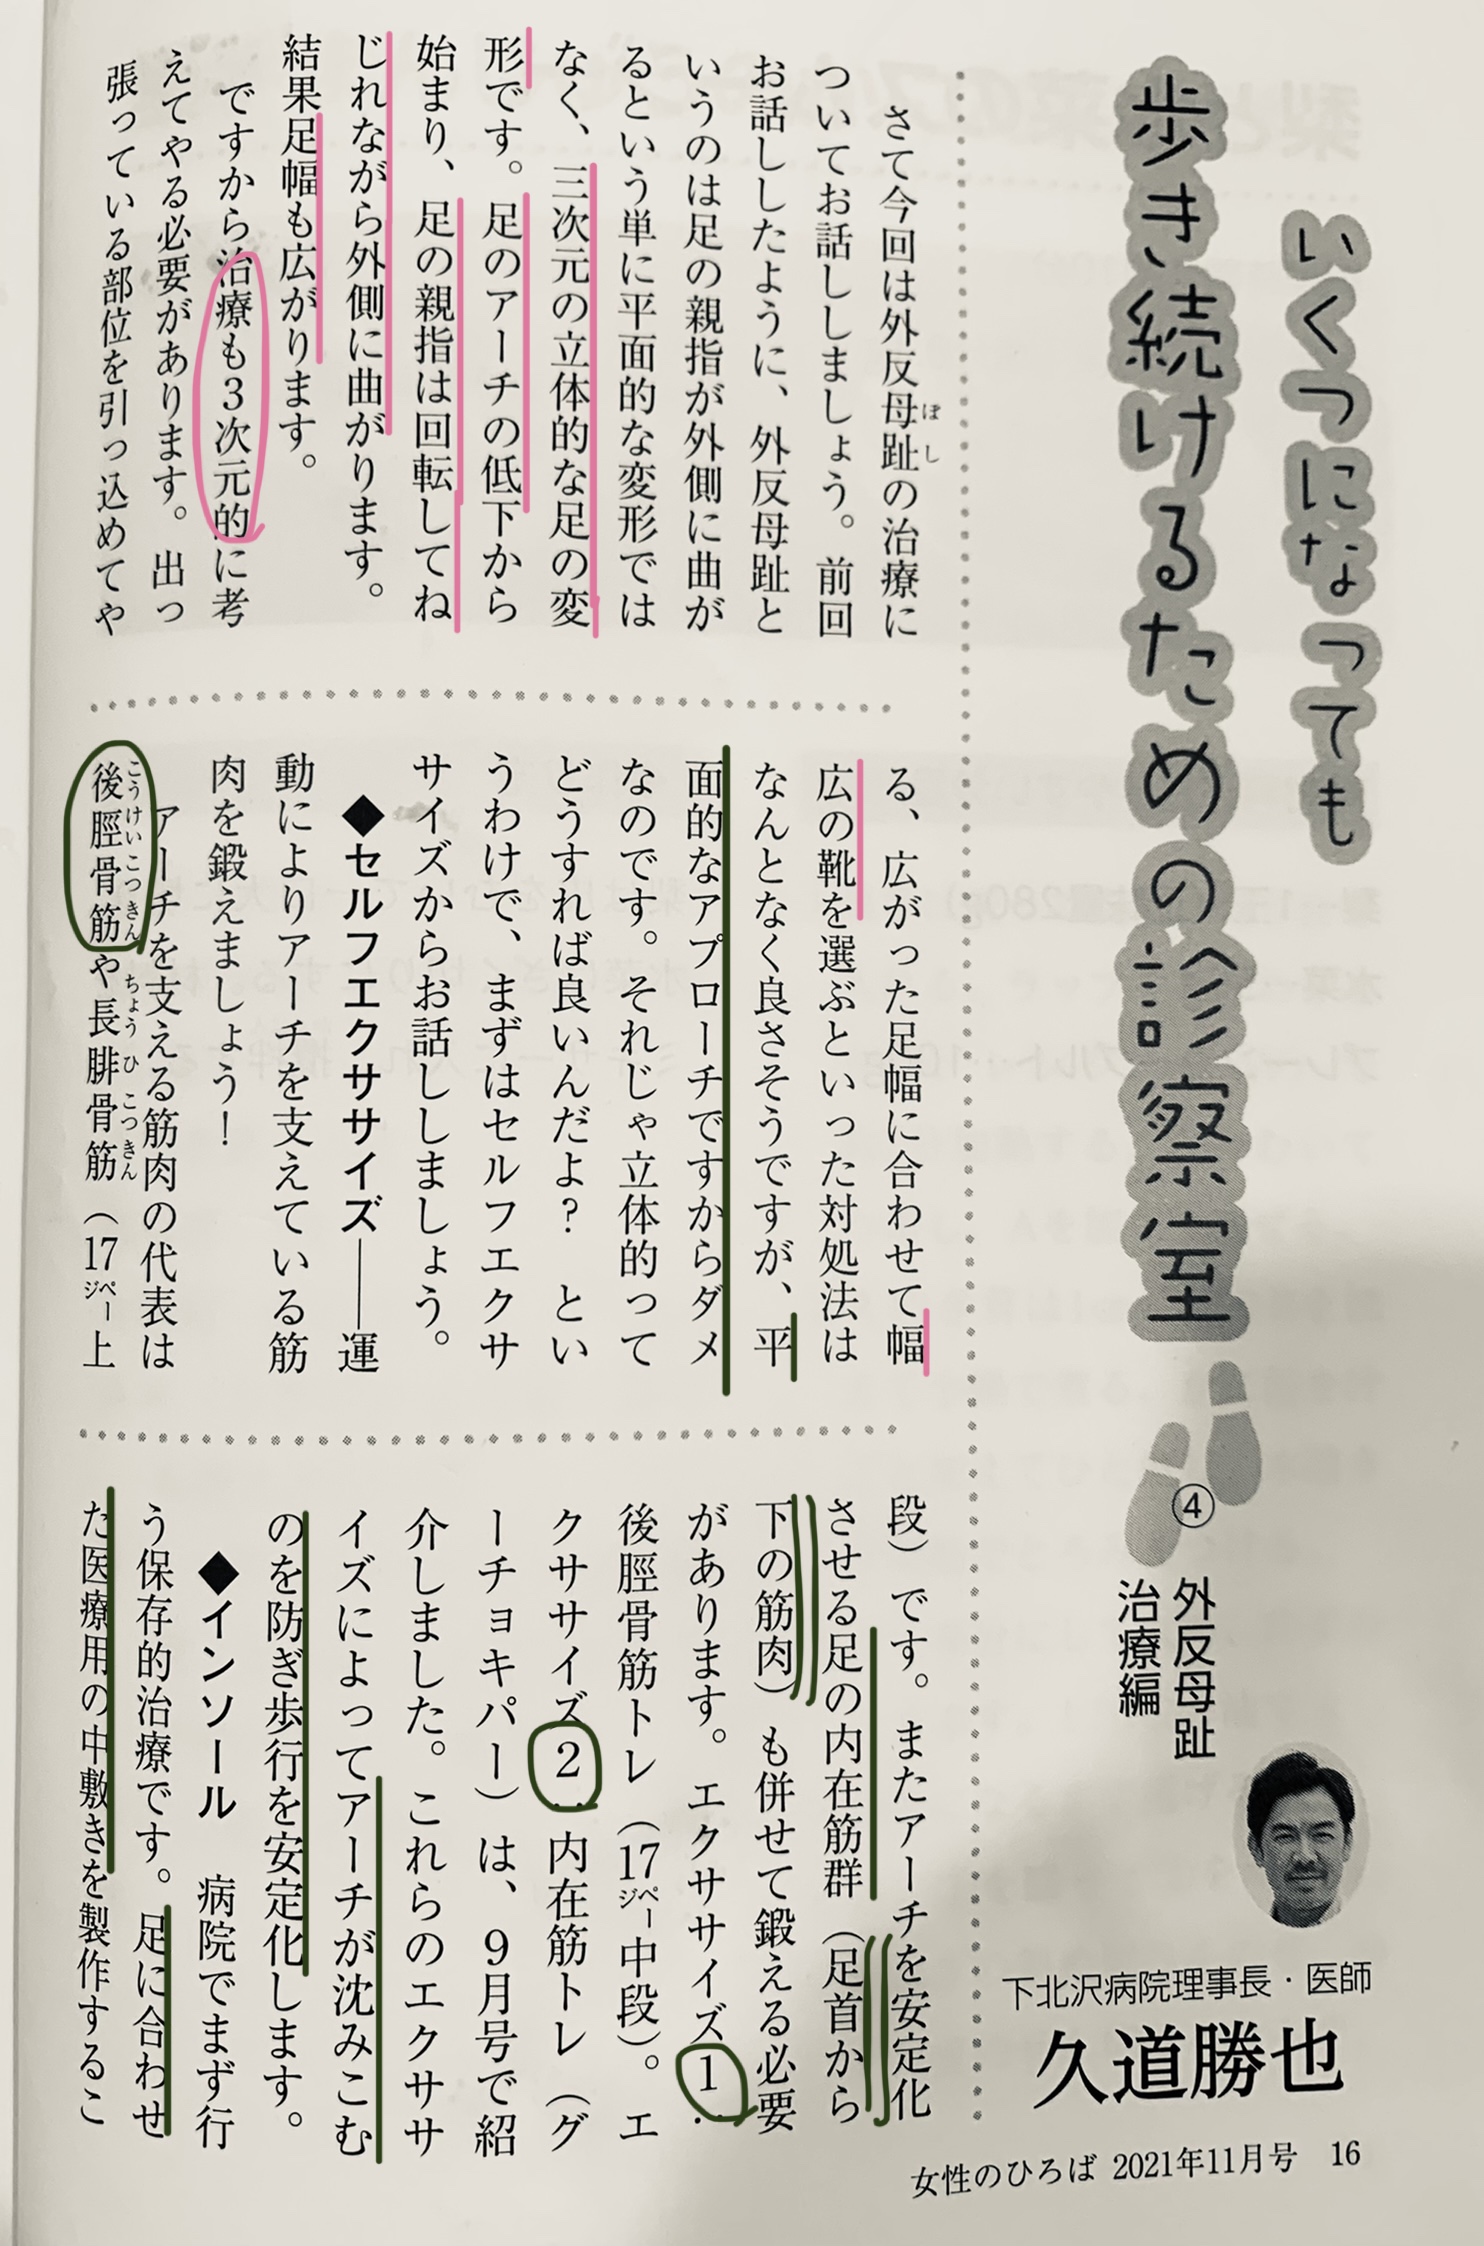 いくつになっても
歩き続けるための診察室
④
外反母趾
治療編
下北沢病院理事長・医師
久道勝也
さて今回は外反母趾の治療に
ぼし
ついてお話ししましょう。前回
お話ししたように、外反母趾と
いうのは足の親指が外側に曲が
るという単に平面的な変形では
なく、三次元の立体的な足の変
形です。足のアーチの低下から
始まり、足の親指は回転してね
じれながら外側に曲がります。
結果足幅も広がります。
ですから治療も3次元的に考
えてやる必要があります。出っ
張っている部位を引っ込めてや
る、広がった足幅に合わせて幅
広の靴を選ぶといった対処法は
なんとなく良さそうですが、平
面的なアプローチですからダメ
なのです。それじゃ立体的って
どうすれば良いんだよ? とい
うわけで、まずはセルフエクサ
サイズからお話ししましょう。
◆セルフエクササイズ――運
動によりアーチを支えている筋
肉を鍛えましょう!
アーチを支える筋肉の代表は
こうけいこっきん ちょうひこつきん
後脛骨筋や長腓骨筋(17ページ上
段)です。またアーチを安定化
させる足の内在筋群(足首から
下の筋肉)も併せて鍛える必要
があります。エクササイズ1:
後脛骨筋トレ(17ページ中段)。エ
クササイズ2:内在筋トレ(グ
ーチョキパー)は、9月号で紹
介しました。これらのエクササ
イズによってアーチが沈みこむ
のを防ぎ歩行を安定化します。
◆インソール 病院でまず行
う保存的治療です。足に合わせ
た医療用の中敷きを製作するこ
女性のひろば 2021年11月号 16